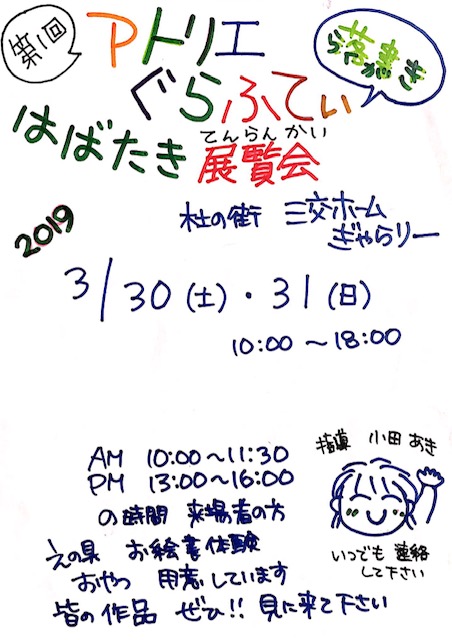 第1回
アトリエ
ぐらふてぃ
落書き
らがき
はばたき 展覧会
てんらんかい
2019
杜の街 三交ホーム
ぎゃらリー
3/30(土)・31(日)
10:00 ~18:00
指導 小田 あき
AM 10:00~11:30
PM 13:00~16:00
の時間 来場者の方
えの具 お絵書体験
おやつ 用意しています
皆の作品 ぜひ!! 見に来て下さい
いつでも 連絡
して下さい